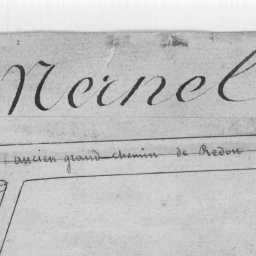 Nernel
ancien grand chemin de Redon